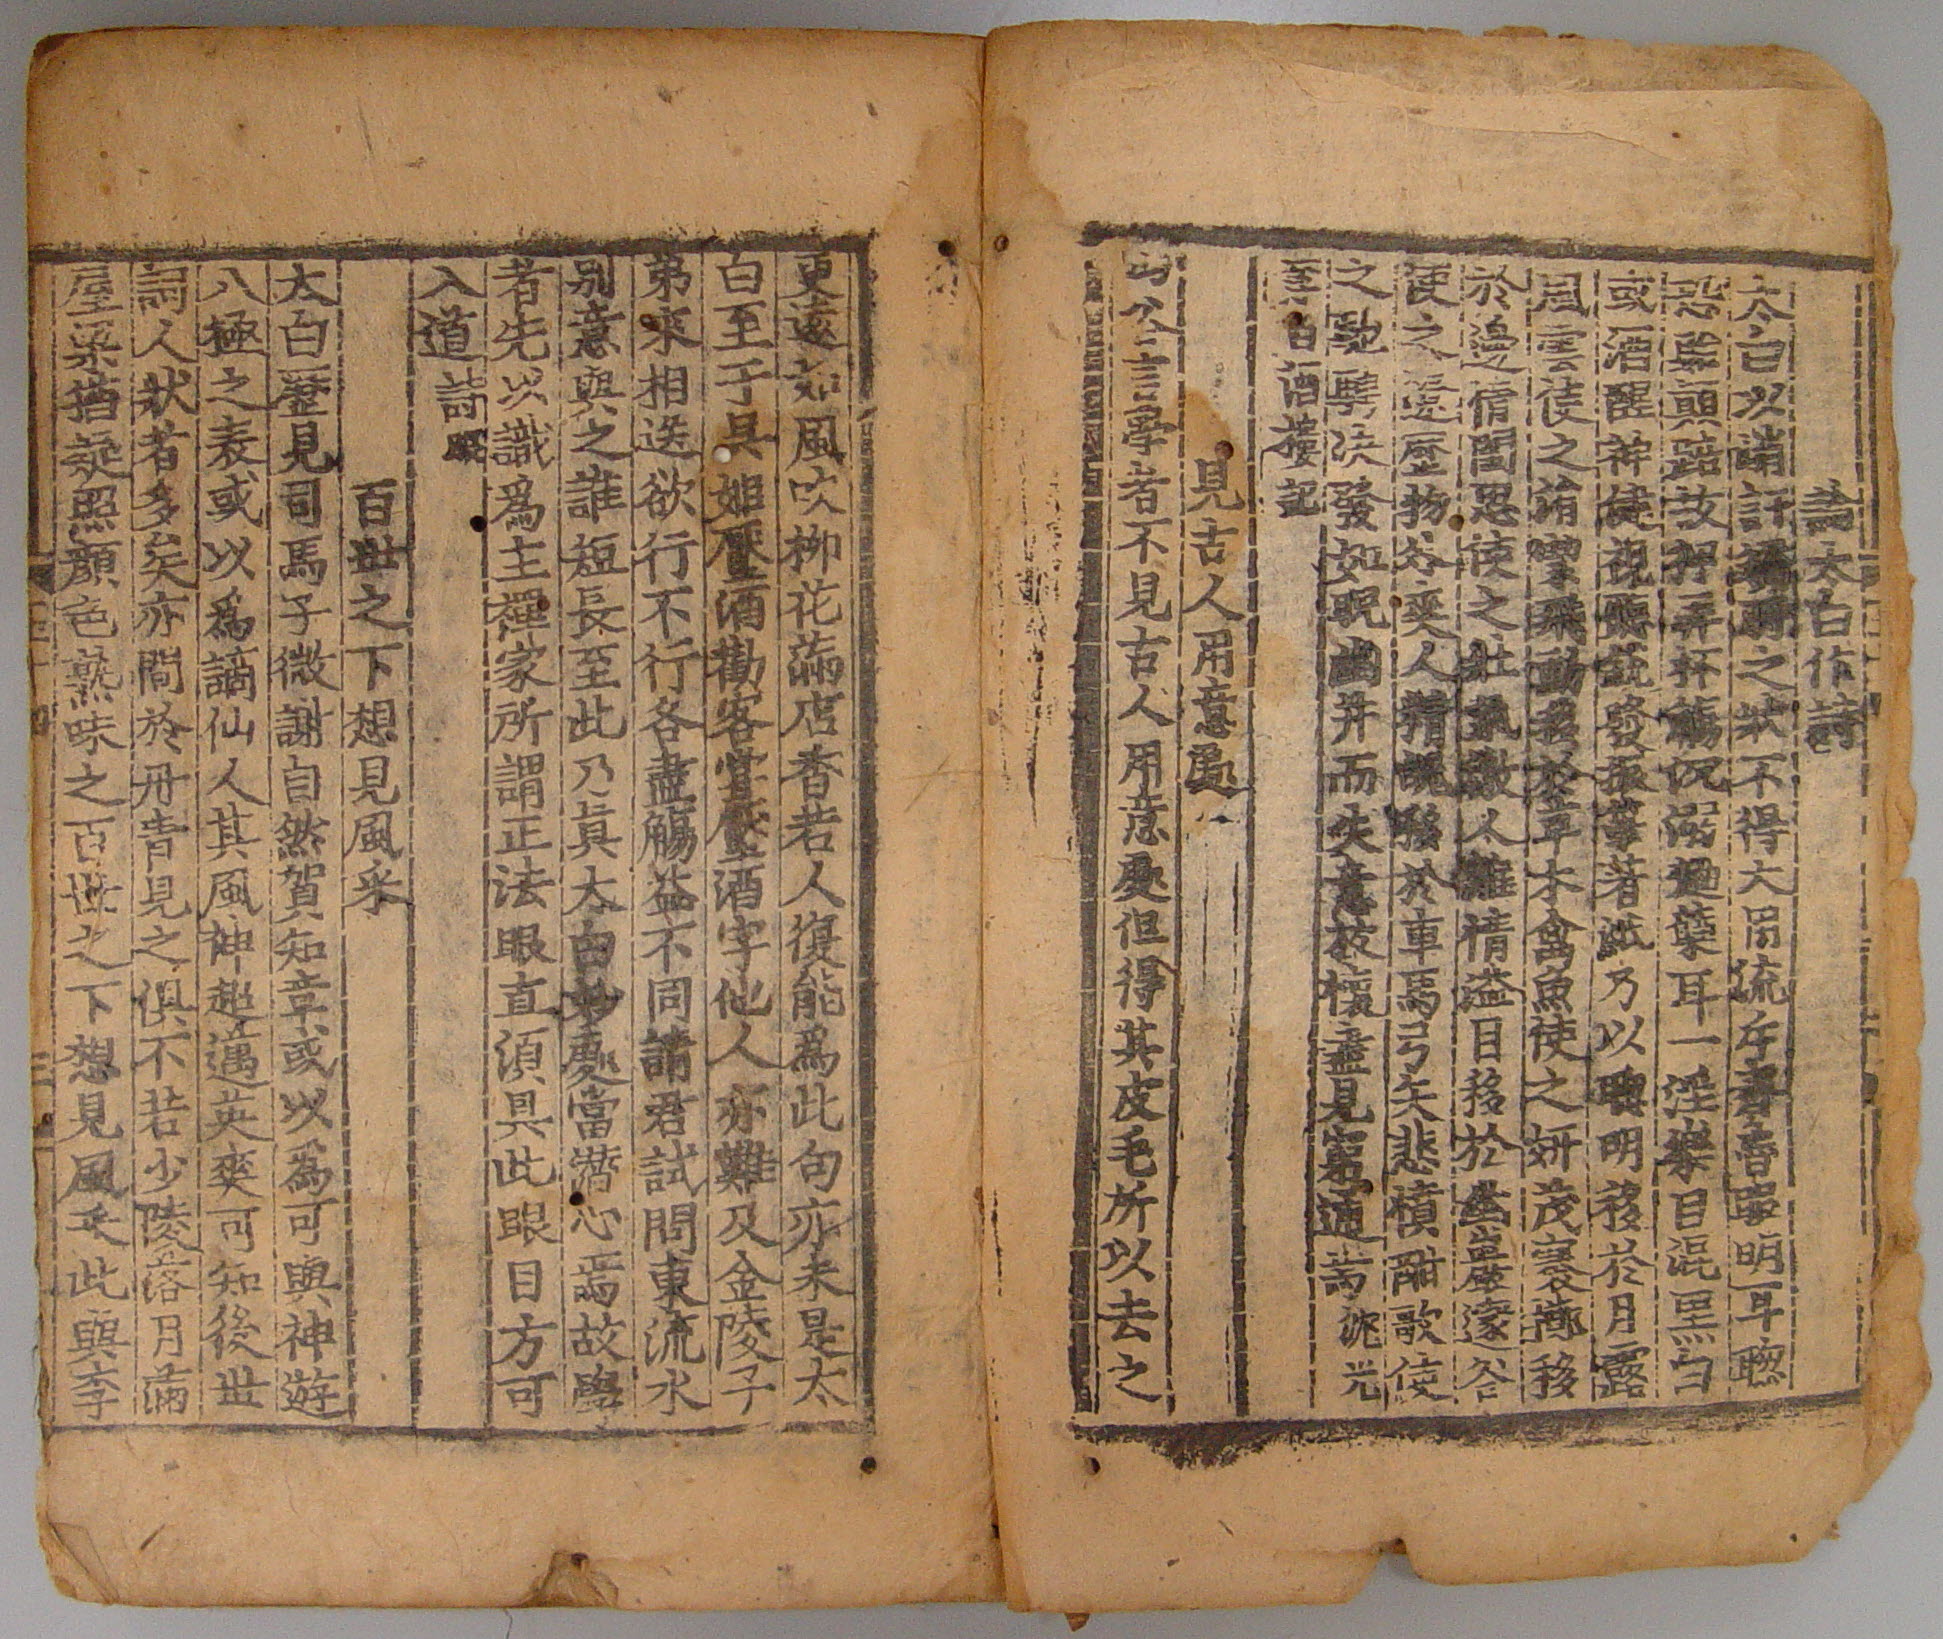 論太白作詩
太白以峭訐矯時之狀不得大用流斥齊魯眼明耳聰
恐貽顛踣故狎弄杯觴沉溺麴蘗耳一淫樂目混黑白
或酒醒神健視聽銳發振筆著紙乃以聰明移於月露
風雲使之涓潔飛動移於草木禽魚使之妍茂褰擲移
於邊情閨思使之壯氣激人離情溢目移於幽巖邃谷
使之遼歷物外爽人精魄移於車馬弓矢悲憤酣歌使
之馳騁決發如睨幽并而失意放懷盡見窮通焉沈光
李白酒樓記
見古人用意處
山谷言學者不見古人用意處但得其皮毛所以去之
更遠如風吹柳花滿店香若人復能為此句亦未是太
白至于吳姬壓酒勸客嘗壓酒字他人亦難及金陵子
弟來相送欲行不行各盡觴益不同請君試問東流水
別意與之誰短長至此乃眞太白妙處當潛心焉故學
者先以識為主禪家所謂正法眼直須具此眼目方可
入道詩眼
百世之下想見風采
太白歷見司馬子微謝自然賀知章或以為可與神遊
八極之表或以為謫仙人其風神超邁英爽可知後世
詞人狀者多矣亦間於丹靑見之俱不若少陵落月滿
屋梁猶疑照顏色熟味之百世之下想見風采此與李